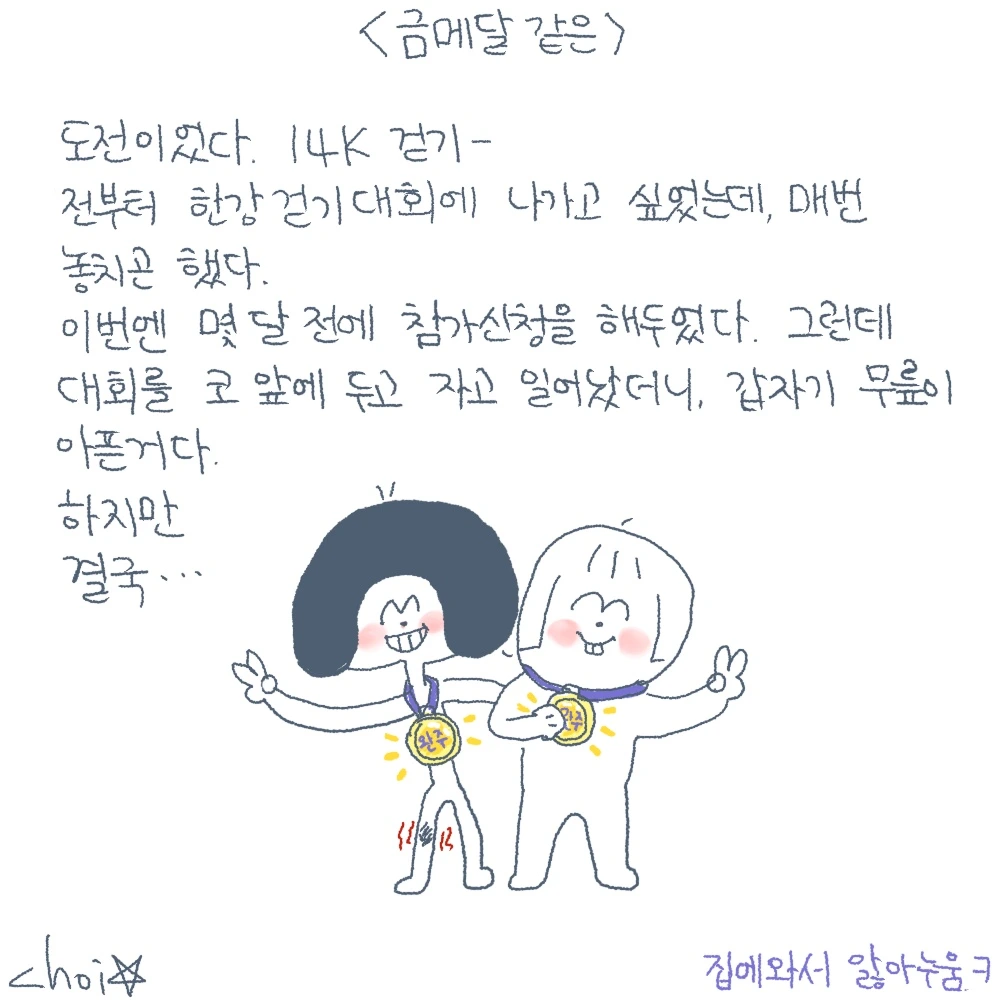 <금메달 같은>
도전이었다. 14K 걷기-
전부터 한강 걷기대회에 나가고 싶었는데, 매번
놓치곤 했다.
이번엔 몇 달 전에 참가신청을 해두었다. 그런데
대회를 코 앞에 두고 자고 일어났더니, 갑자기 무릎이
아픈거다.
하지만
결국...
완주
완주
choi☆
집에와서 앓아누움.ㅋ